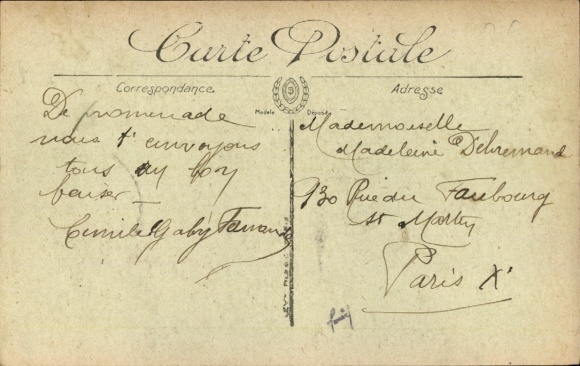 Carte Postale
Correspondance
Adresse
Modèle Déposé
De promenade
nous t'envoyons
tous un bon
baiser –
Gaby
Mademoiselle
Madeleine
130 Rue du Faubourg
St Martin
Paris X'